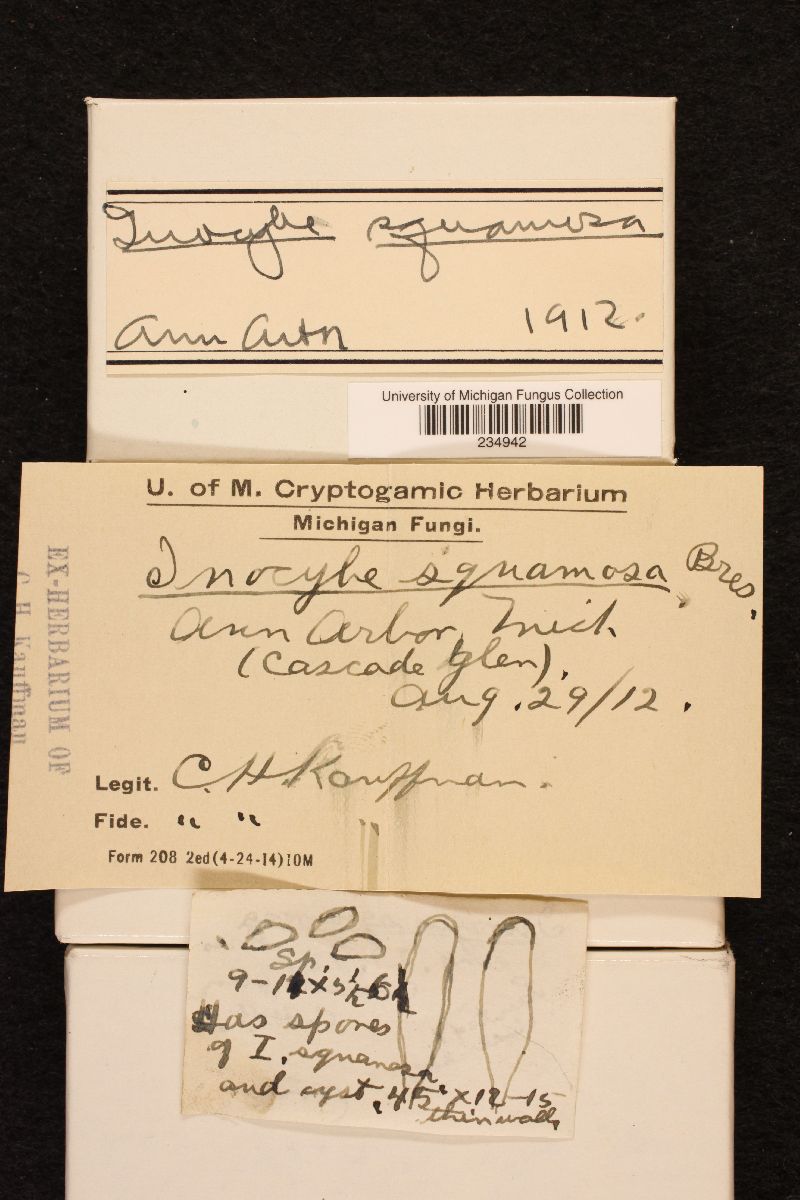 Inocybe squamosa
Ann Arbor
1912.
University of Michigan Fungus Collection
234942
U. of M. Cryptogamic Herbarium
Michigan Fungi.
Inocybe squamosa Bres.
Ann Arbor, Mich
(Cascade Glen).
Aug. 29/12.
Legit. C. H. Kauffman.
Fide. " " "
Form 208 2ed (4-24-14) 10M
EX-HERBARIUM OF
C. H. Kauffman
Sp.
Has spores
of I. squamosa
and cyst. 45 × 12-15
thin wall,